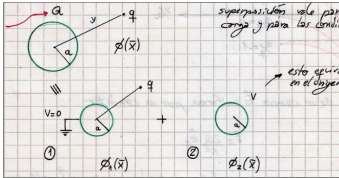 Q
y
q
a
ϕ(x̄)
superposición vale par
carga y para las condi
|||
esto equiv
en el origen
V=0
q
a
+
V
a
①
ϕ₁(x̄)
②
ϕ₂(x̄)